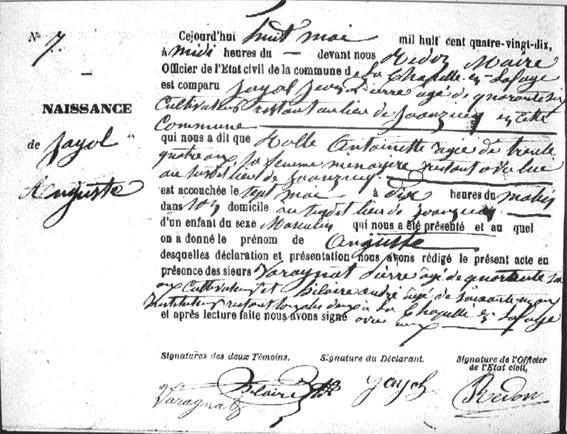 N° 7.
NAISSANCE
de Jayol
Auguste
Cejourd'hui huit mai mil huit cent quatre-vingt-dix,
à midi heures du — devant nous Redon Maire
Officier de l'Etat civil de la commune de La Chapelle-en-Lafaye
est comparu Jayol Jean Pierre agé de quarante six
Cultivateur restant au lieu de en cette
Commune
qui nous a dit que Rolle Antoinette agée de trente
quatre ans sa femme menagère restant avec lui
au susdit lieu de
est accouchée le sept mai à dix heures du matin
dans son domicile au susdit lieu de
d'un enfant du sexe Masculin qui nous a été présenté et au quel
on a donné le prénom de Auguste
desquelles déclaration et présentation nous avons rédigé le présent acte en
présence des sieurs Varagnat Pierre agé de quarante
ans Cultivateur et Hilaire André agé de soixante
Instituteur restant tous deux à La Chapelle en Lafaye
et après lecture faite nous avons signé avec eux
Signatures des deux Témoins. Signature du Déclarant. Signature de l'Officier
de l'Etat civil,
Varagnat Hilaire Jayol Redon